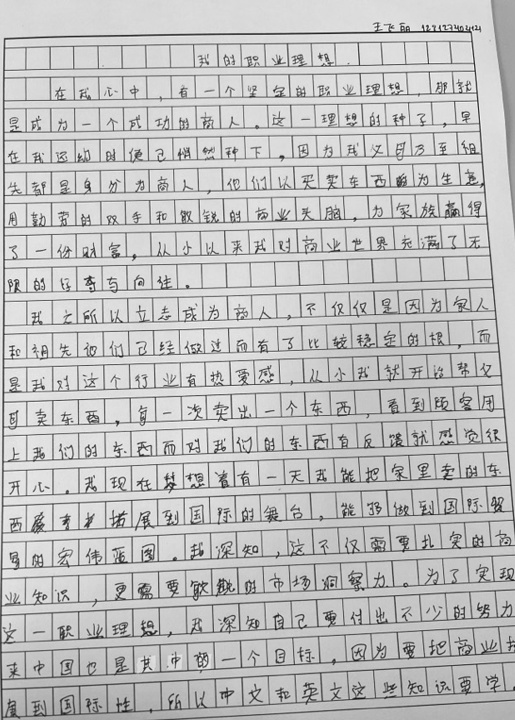 王飞明
我的职业理想
在我心中，有一个坚定的职业理想，那就
是成为一个成功的商人。这一理想的种子，早
在我还幼时便已悄然种下，因为我父母乃至祖
先都是身分为商人，他们以买卖东西为生意，
用勤劳的双手和敏锐的商业头脑，为家族赢得
了一份财富，从小以来我对商业世界充满了无
限的好奇与向往。
我之所以立志成为商人，不仅仅是因为家人
和祖先他们已经做过而有了比较稳定的根，而
是我对这个行业有热爱感，从小我就开始帮父
母卖东西，每一次卖出一个东西，看到顾客用
上我们的东西而对我们的东西有反馈就感觉很
开心。我现在梦想着有一天我能把家里卖的东
西拓展到国际的舞台，能够做到国际贸
易的宏伟蓝图。我深知，这不仅需要扎实的商
业知识，更需要敏锐的市场洞察力。为了实现
这一职业理想，我深知自己要付出不少的努力
来中国也是其中的一个目标，因为要把商业拓
展到国际性，所以中文和英文这些知识要学，